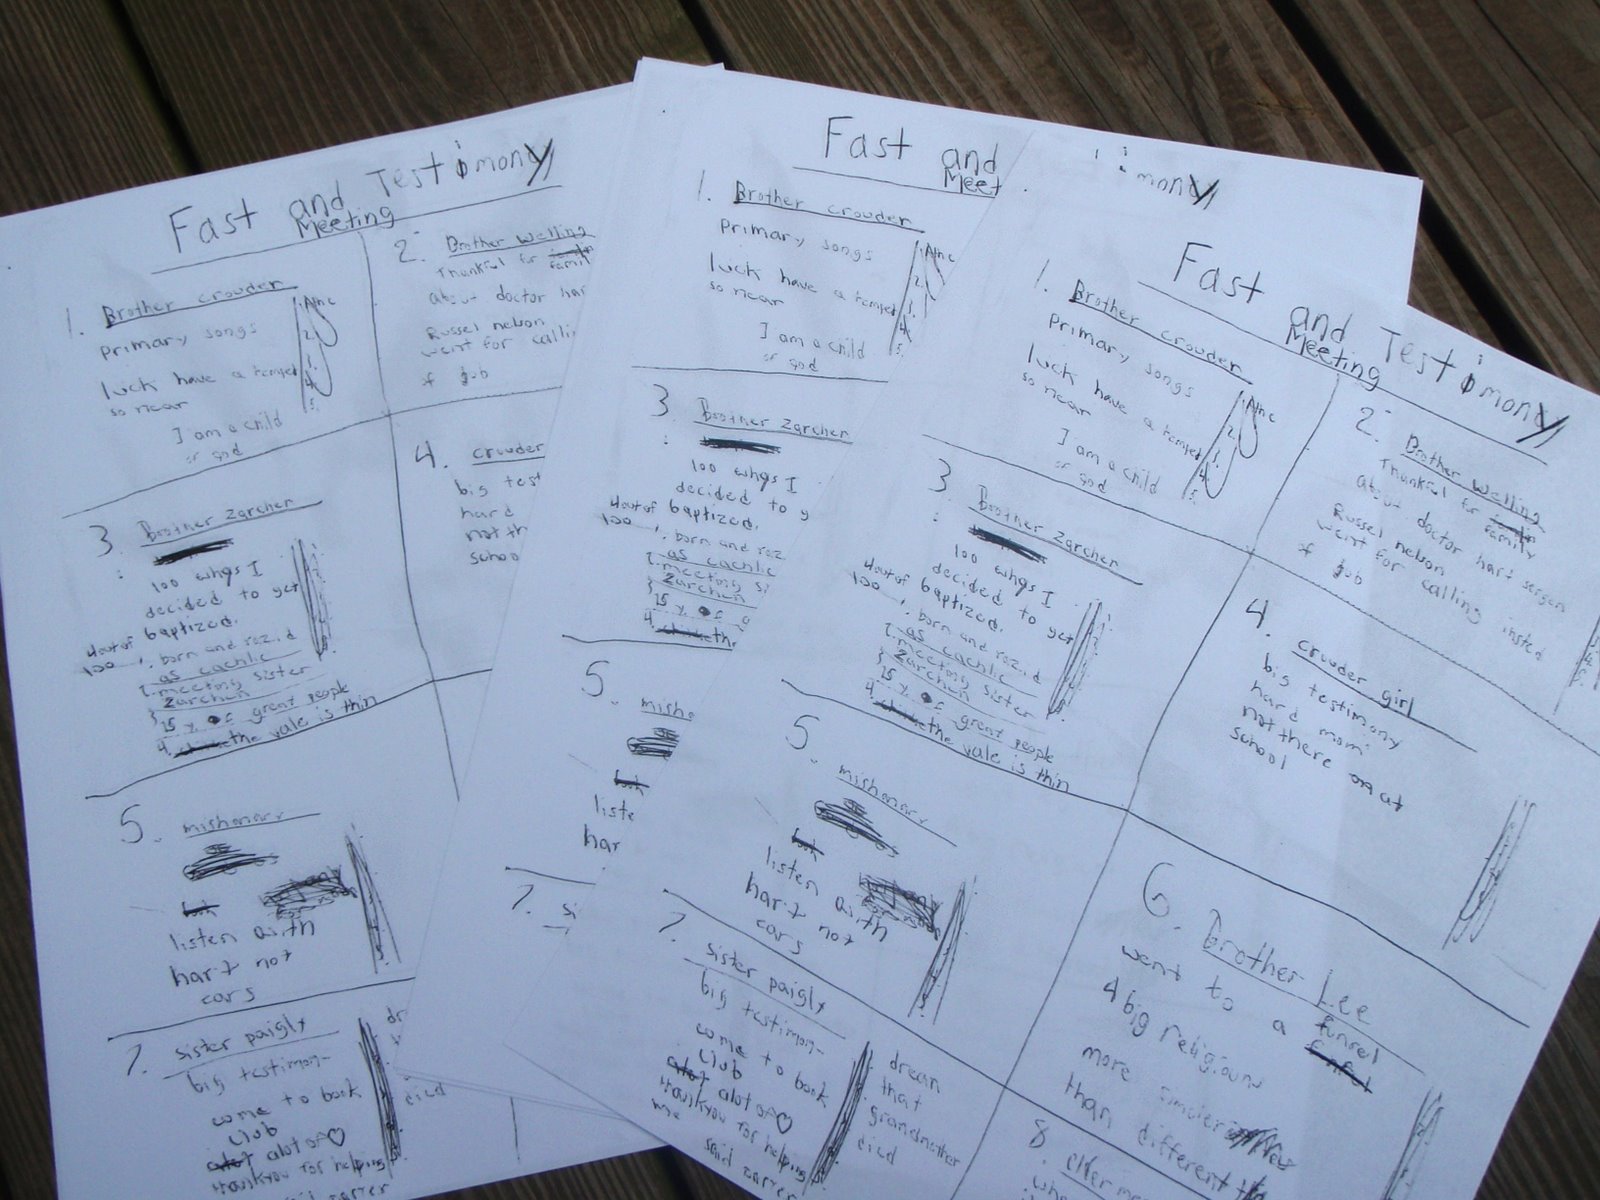 Fast and Testimony
Meeting
1. Brother crouder
primary songs
luck have a tempel
so near
I am a child
of god
2. Brother Welling
Thankful for
about doctor har
Russel nelson
went for calli
of job
3. Brother Zarcher
100 whys I
decided to get
baptized.
4out of
100
1. born and
as cachlic
2. meeting sister
3. Zarchen
15 % of great people
4. the vale is thin
4. crouder
big test
hard
not th
schoo
5. mishonary
listen with
hart not
ears
7. sister paigly
big testimon-
come to book
club
alot of ♡
thankyou for helping
dr
died
Fast and
Meet
1. Brother crouder
primary songs
luck have a tempel
so near
I am a child
of god
3. Brother Zarcher
100 whys I
decided to g
baptized.
4out of
100
1. born and
as cachlic
2. meeting si
3. Zarchen
15 % of g
4. th
5. misho
liste
har
7. si
imony
Fast and Testimony
Meeting
1. Brother crouder
primary songs
luck have a tempel
so near
I am a child
of god
2. Brother Welling
Thankful for family
about doctor hart sergen
Russel nelson
went for calling insted
of job
3. Brother Zarcher
100 whys I
decided to get
baptized.
4out of
100
1. born and
as cachlic
2. meeting sister
3. Zarchen
15 % of great people
4. the vale is thin
4. crouder girl
big testimony
hard mom
not there at
school
5. mishonary
listen with
hart not
ears
6. Brother Lee
went to a funrel
4 big religiouns
more simcler
than different
7. sister paigly
big testimon-
come to book
club
alot of ♡
thankyou for helping
me
said
drean
that
grandmother
died
8. elder